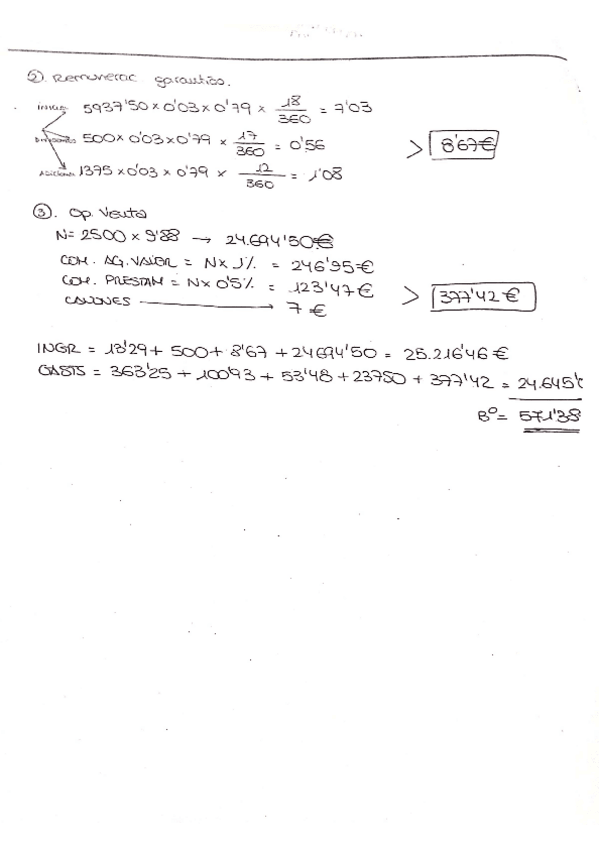 ②. Remunerac garantías.
Inicial 5937'50 x 0'03 x 0'79 x 18/360 = 7'03
Dividendos 500 x 0'03 x 0'79 x 17/360 = 0'56 > 8'67€
Adicional 1375 x 0'03 x 0'79 x 12/360 = 1'08
③. Op. Venta
N= 2500 x 9'88 → 24.694'50€
COM. AG. VALOR = N x 1% = 246'95€
COM. PRESTAM = N x 0'5% = 123'47€ > 377'42€
CANONES → 7€
INGR = 13'29 + 500 + 8'67 + 24694'50 = 25.216'46€
GASTS = 363'25 + 100'93 + 53'48 + 23750 + 377'42 = 24.645'
Bº= 571'38